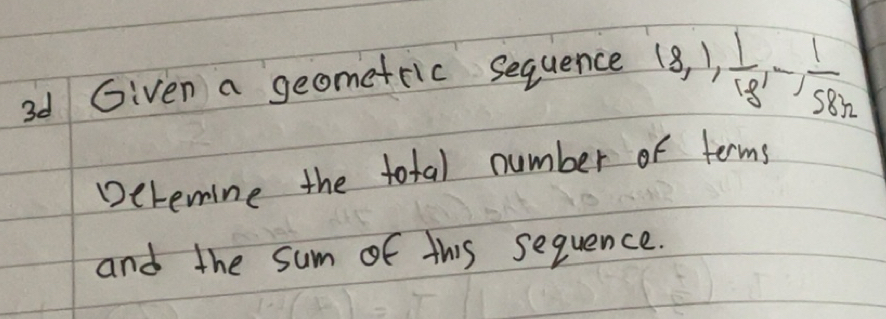 3d Given a geometric sequence 18, 1, 1/18, -, 1/5832
Detemine the total number of terms
and the sum of this sequence.